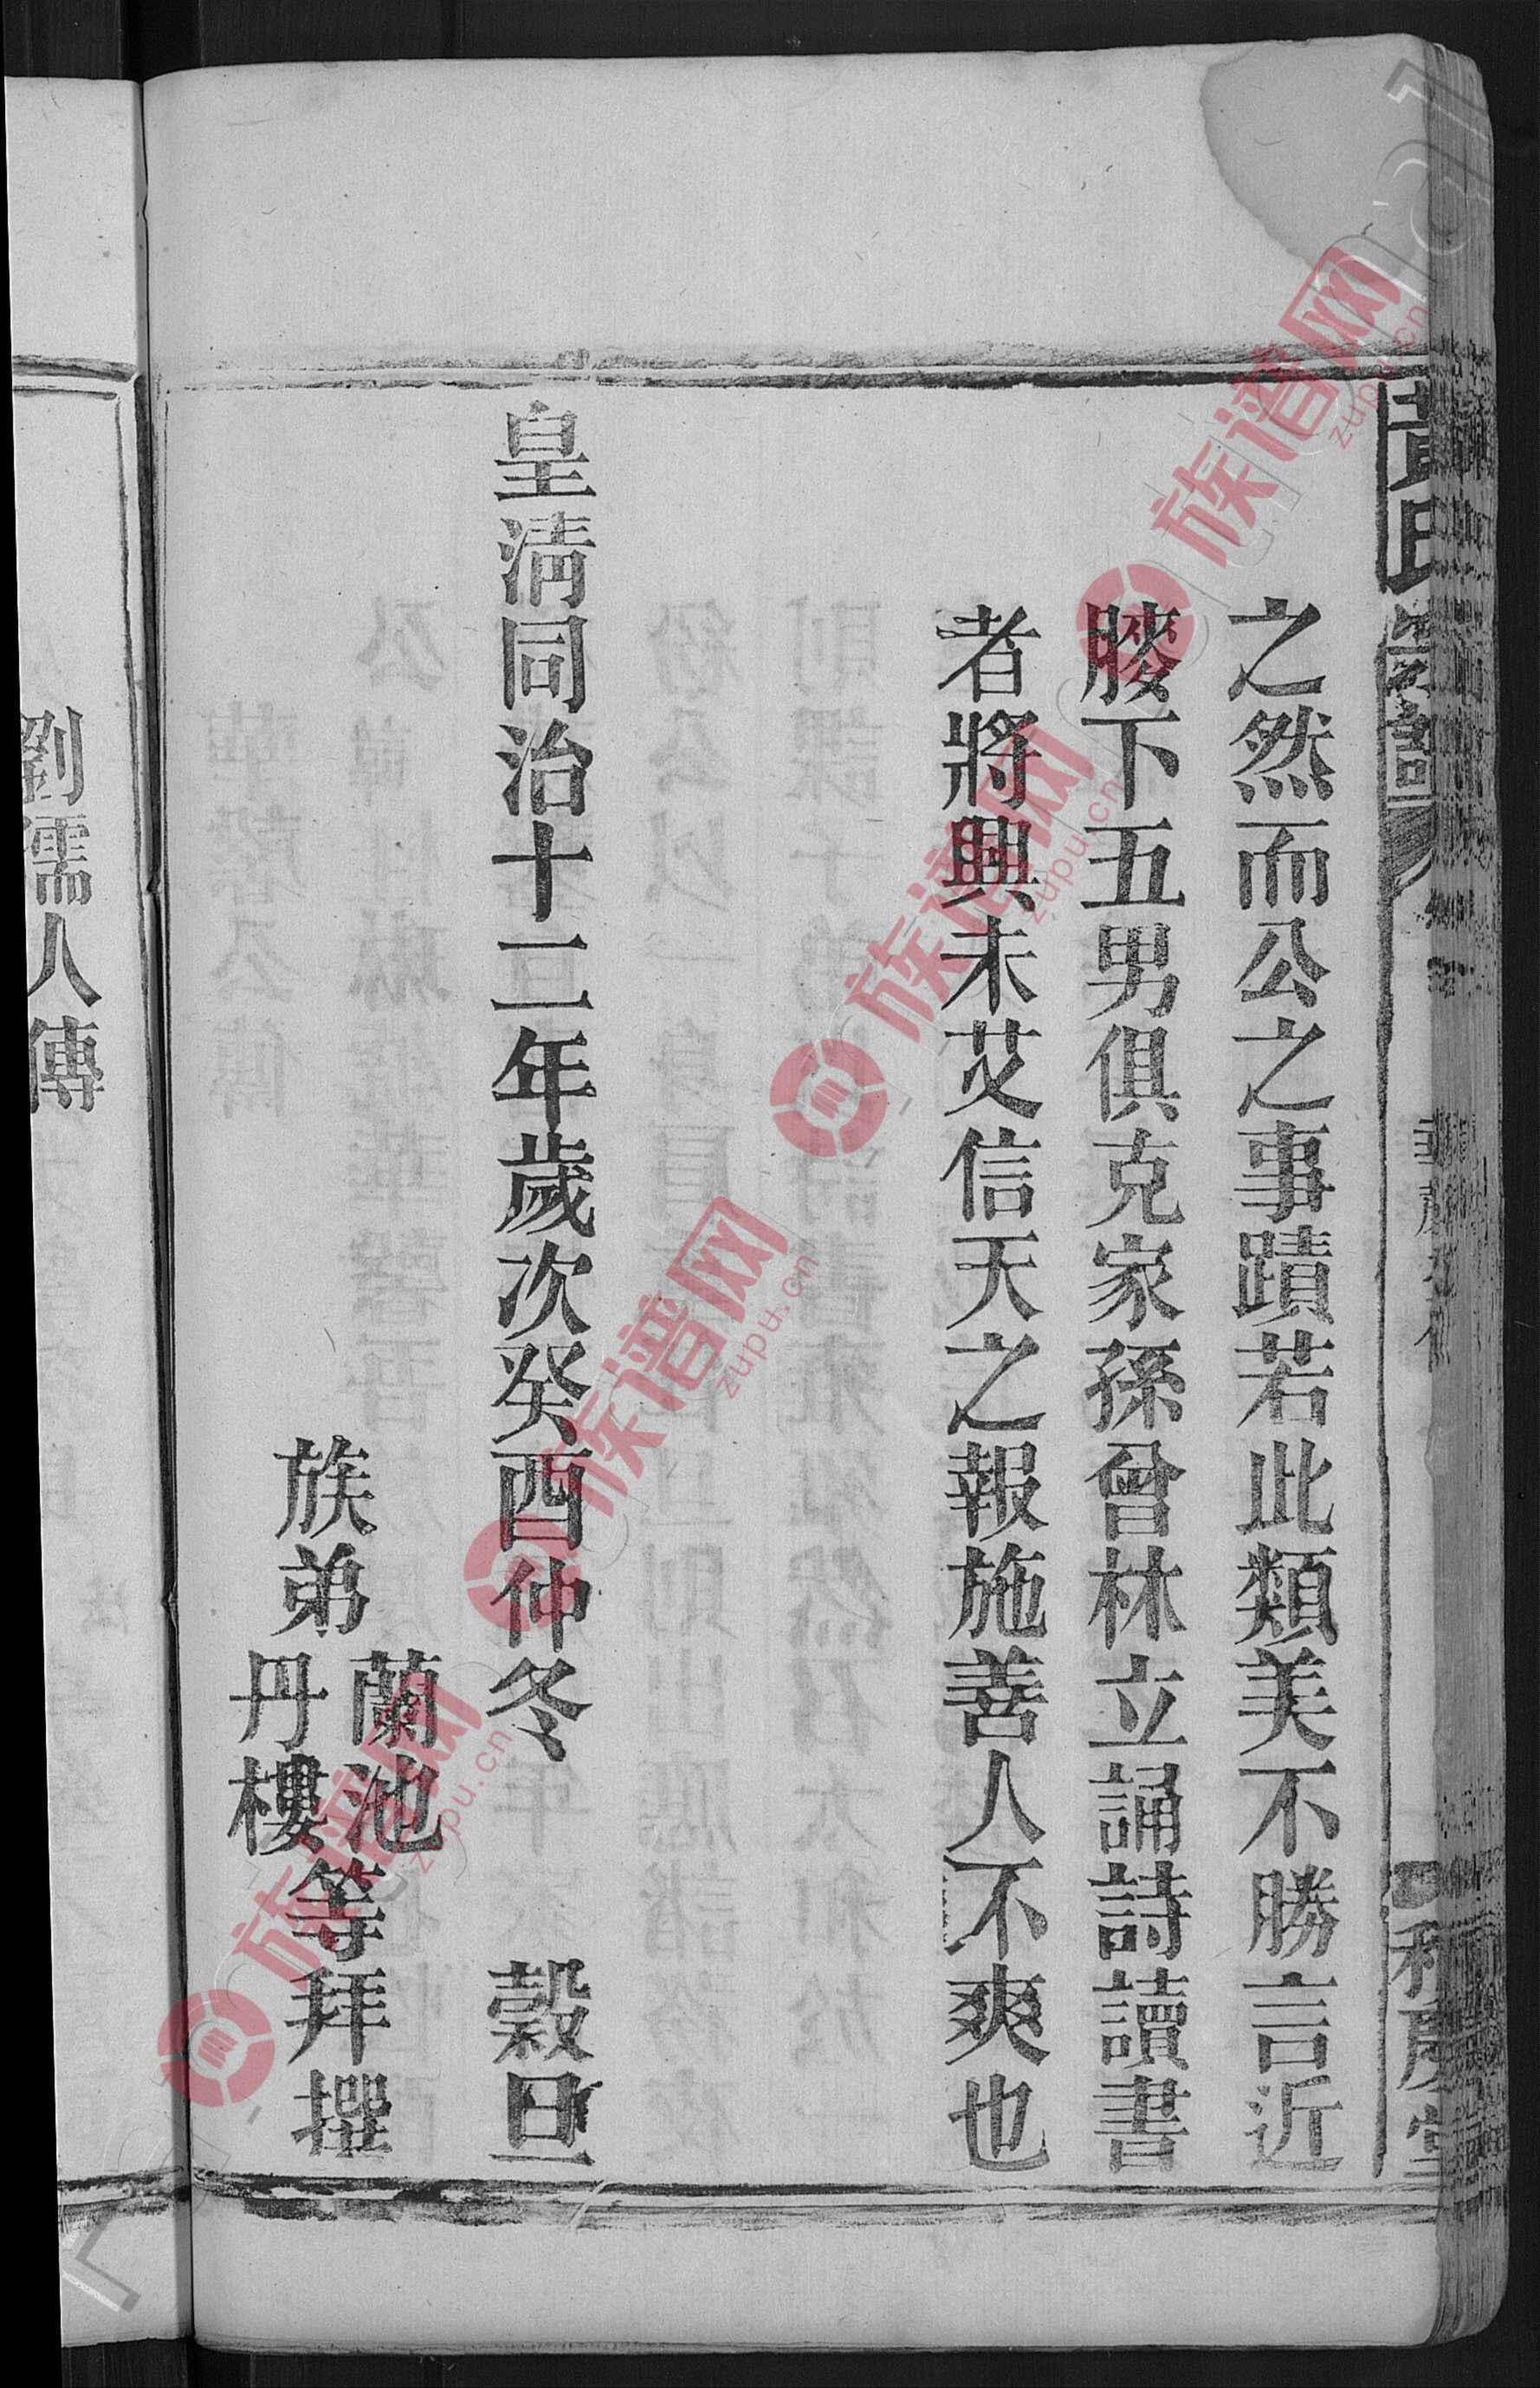 之然而公之事蹟若此類美不勝言近
膝下五男俱克家孫曾林立誦詩讀書
者將興未艾信天之報施善人不爽也
皇清同治十二年歲次癸酉仲冬 穀旦
族弟蘭池丹樓等拜撰
劉孺人傳
族谱网
zupu.cn
族谱网
zupu.cn
族谱网
zupu.cn
族谱网
zupu.cn